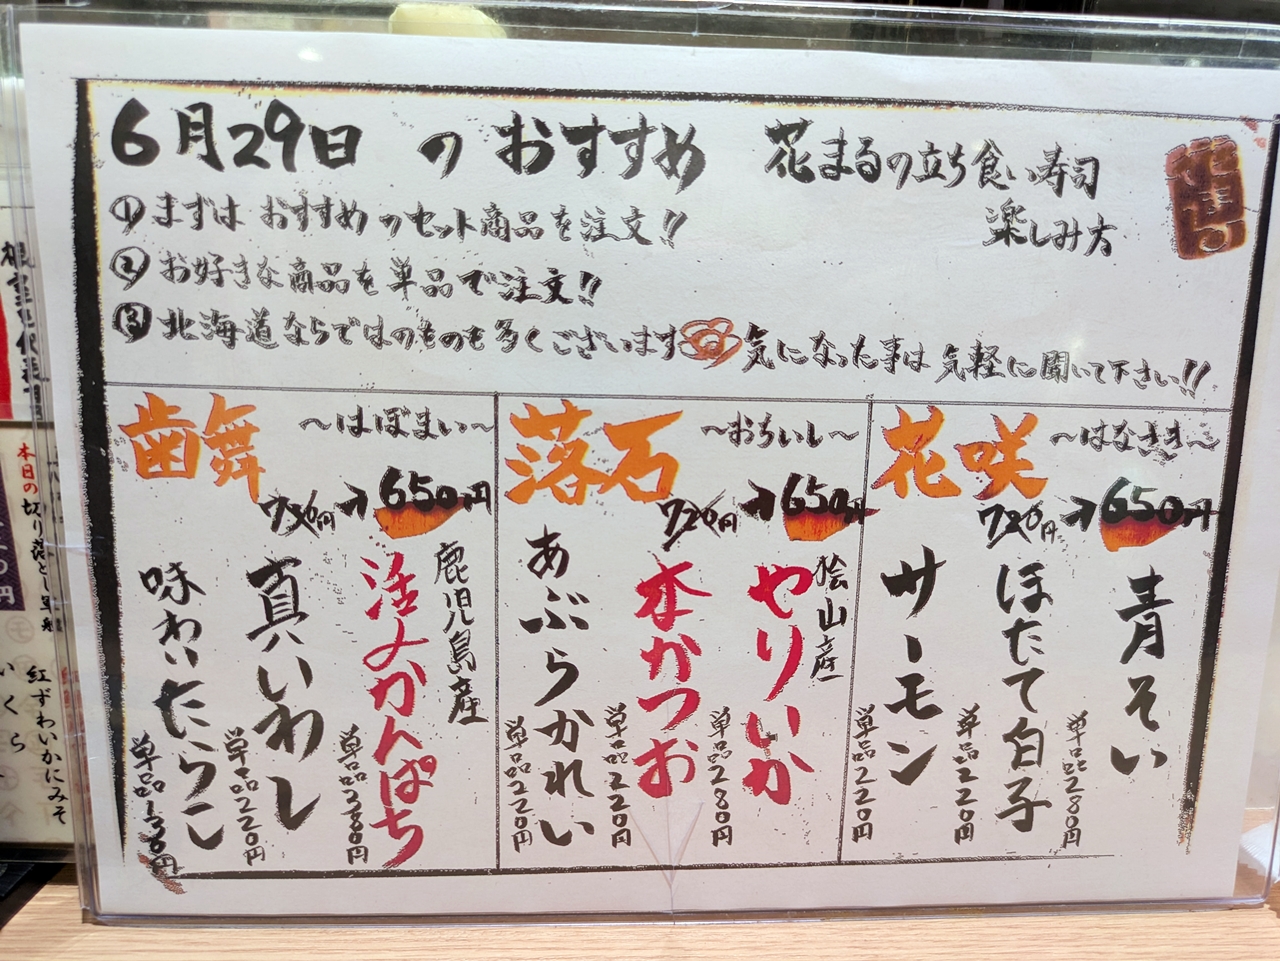 6月29日 のおすすめ 花まるの立ち食い寿司
楽しみ方
① まずは おすすめのセット商品を注文!!
② お好きな商品を単品で注文!!
③ 北海道ならではのものも多くございます 気になった事は気軽に聞いて下さい!!
花咲 〜はなさき〜
720円→650円
青そい
単品280円
ほたて白子
単品220円
サーモン
単品220円
落石 〜おちいし〜
720円→650円
桧山産
やりいか
単品280円
本かつお
単品220円
あぶらかれい
単品220円
歯舞 〜はぼまい〜
→650円
鹿児島産
活〆かんぱち
単品380円
真いわし
単品220円
味わいたらこ
単品130円
本日の切り落とし軍艦
紅ずわいかにみそ
いくら